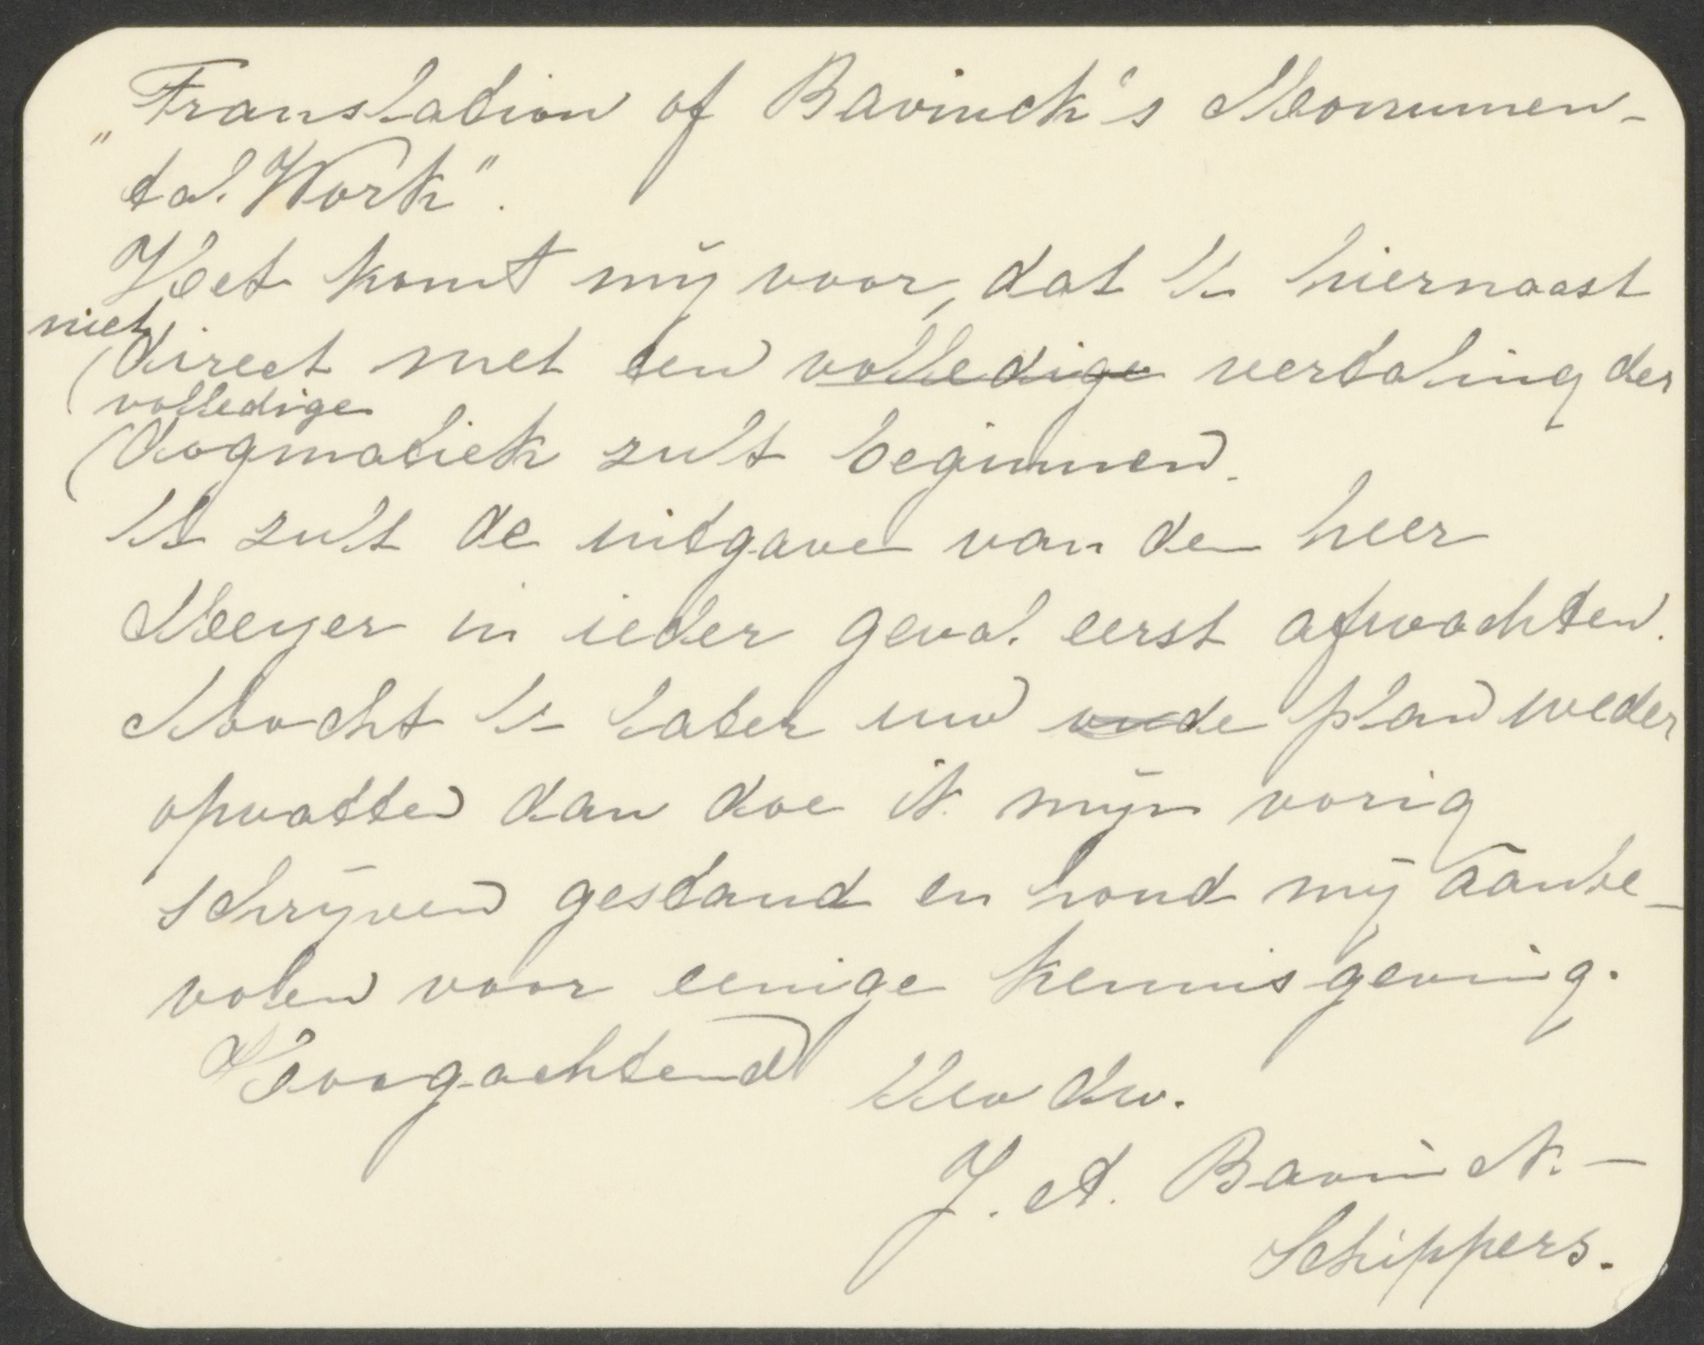 „Translation of Bavinck's Monumen-
tal Work".
Het komt mij voor, dat U hiernaast
niet
direct met een volledige vertaling der
volledige
dogmatiek zult beginnen.
U zult de uitgave van de heer
Meyer in ieder geval eerst afwachten.
Mocht U later uw oude plan weder
opvatten dan doe ik mijn vorig
schrijven gestand en houd mij aanbe-
volen voor eenige kennisgeving.
Hoogachtend
Uw dw.
J. A. Bavinck-
Schippers.